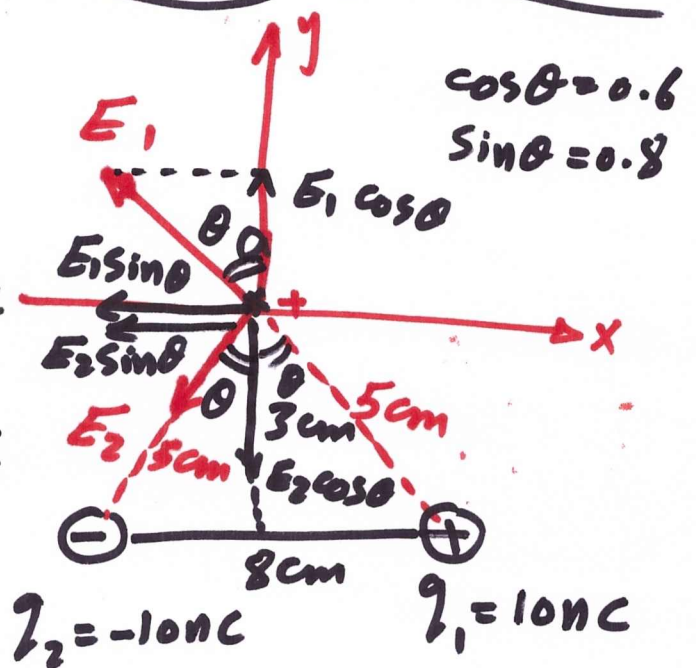 y
cosθ = 0.6
sinθ = 0.8
E₁
E₁ cosθ
θ
θ
E₁sinθ
+
x
E₂sinθ
θ
θ
3cm
5cm
E₂
5cm
E₂cosθ
−
+
8cm
q₂ = -10nC
q₁ = 10nC